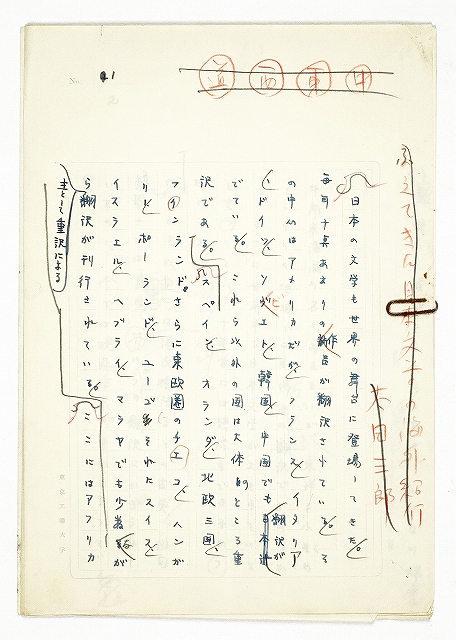 No. 1
ふえてきた日本文学の海外紹介
三郎
日本の文学も世界の舞台に登場してきた。
毎月十点あまりの作が翻訳されている。
の中心はアメリカだが、フランス、イタリア
、ドイツ、ソヴエト、韓国、中国でも日本翻訳が進
でている。これら以外の国は大体のところ重
訳である。スペイン、オランダ、北欧三国、
フィンランド、さらに東欧圏のチェコ、ハンガ
リー、ポーランド、ユーゴ、それにスイス、
イスラエル、ヘブライ、マラヤでも少数なが
ら翻訳が刊行されている。ここにはアフリカ
主として重訳による